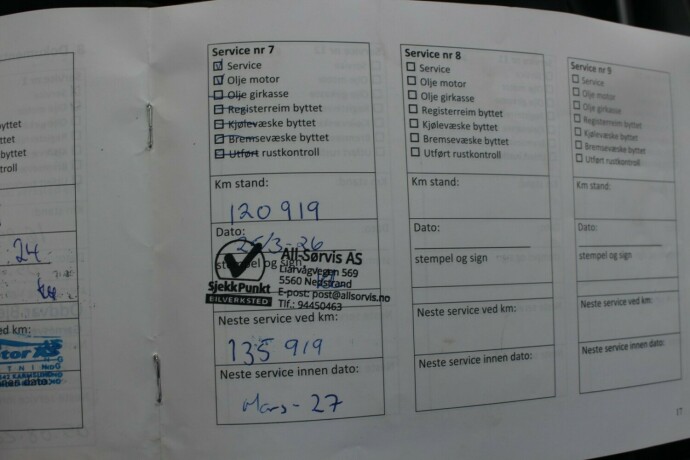 byttet
byttet
byttet
oll
24
ved km:
Service nr 7
Service
Olje motor
Olje girkasse
Registerreim byttet
Kjølevæske byttet
Bremsevæske byttet
Utført rustkontroll
Km stand:
120 919
Dato:
25/3-26
stempel og sign
SjekkPunkt
BILVERKSTED
All-Sørvis AS
Liarvågvegen 569
5560 Nedstrand
E-post: post@allsorvis.no
Tlf.: 94450463
Neste service ved km:
135 919
Neste service innen dato:
Mars - 27
Service nr 8
Service
Olje motor
Olje girkasse
Registerreim byttet
Kjølevæske byttet
Bremsevæske byttet
Utført rustkontroll
Km stand:
Dato:
stempel og sign
Neste service ved km:
Neste service innen dato:
Service nr 9
Service
Olje motor
Olje girkasse
Registerreim byttet
Kjølevæske byttet
Bremsevæske byttet
Utført rustkontroll
Km stand:
Dato:
stempel og sign
Neste service ved km:
Neste service innen dato:
17